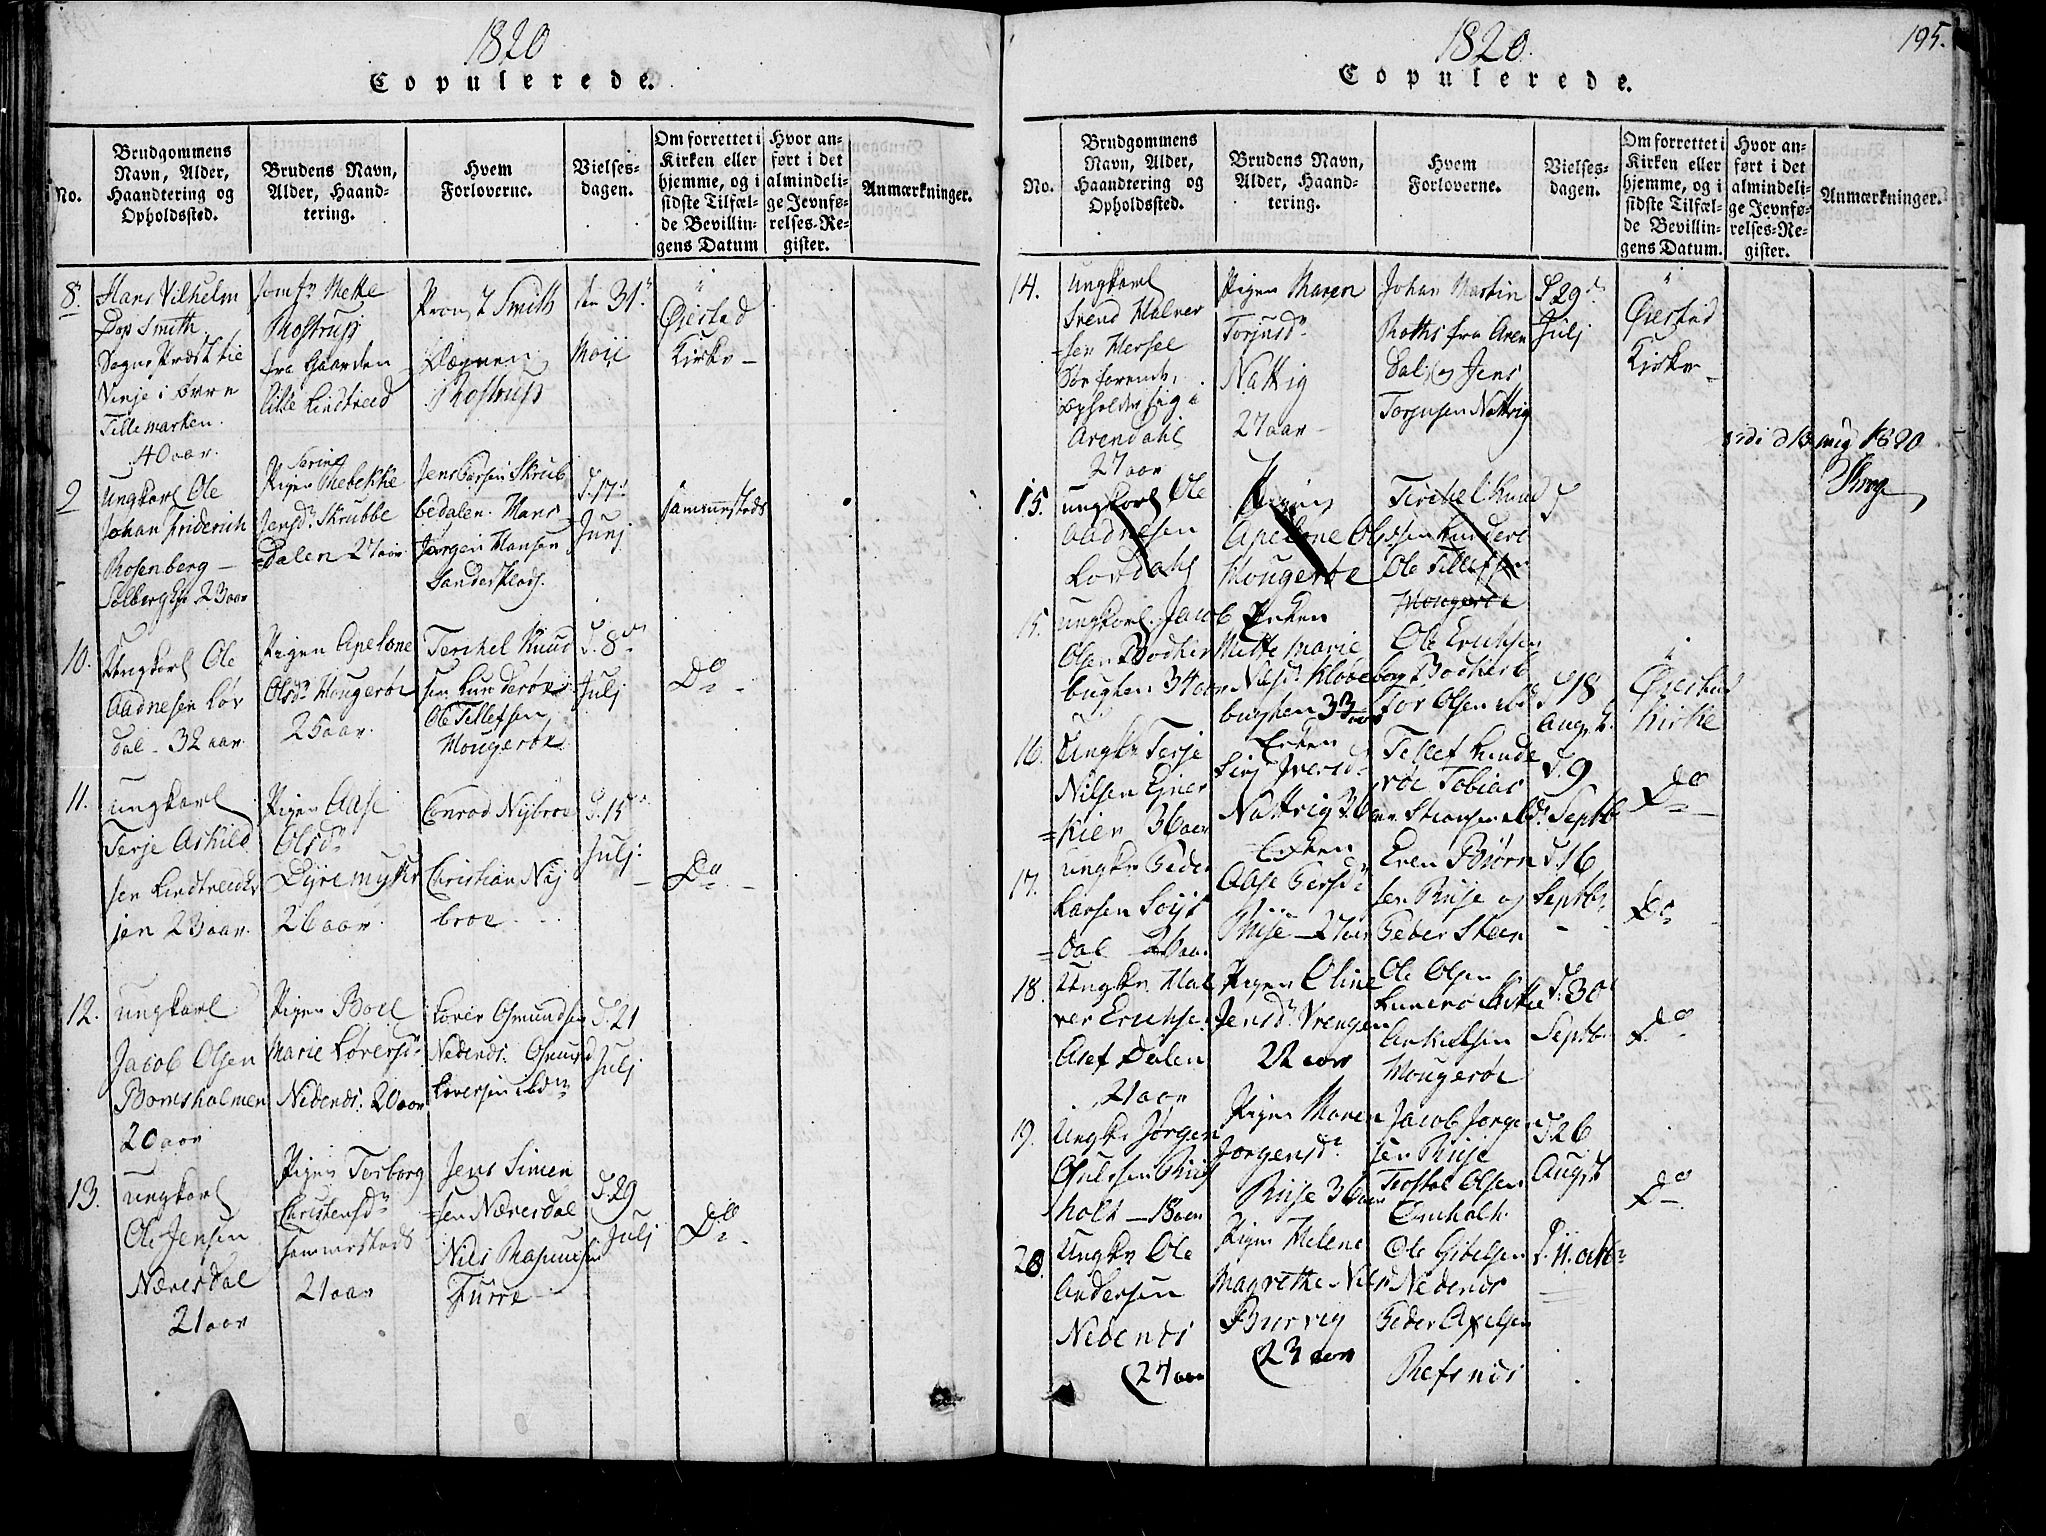 1820
Copulerede.
No.
Brudgommens
Navn, Alder,
Haandtering og
Opholdssted.
Brudens Navn,
Alder, Haand-
tering.
Hvem
Forloverne.
Vielses-
dagen.
Om forrettet i
Kirken eller
hjemme, og i
sidste Tilfæl-
de Bevillin-
gens Datum
Hvor an-
ført i det
almindeli-
ge Jevnfø-
relses-Re-
gister.
Anmærkninger.
8.
Hans Vilhelm
Dop Smith
Sogne Præst til
Vinje i øvre
Tillemarken.
40 aar.
Jomfr Mette
Rostrup
fra Gaarden
Lille Lindtveed
Provst Smith
Rostrup
den 31.
Maii
Øiestad
Kirke
9
Ungkarl Ole
Johan Friderich
Rosenberg
23 aar
Pigen Rebekke
Jensdr Skrubbe
Dalen 27 aar
Jens Larsen Skrub
bedalen. Hans
Jørgen Hansen
Sandersplads.
d. 17.
Junj
sammesteds
10.
Ungkarl Ole
Aadnesen Lør
dal - 32 aar.
Pigen Apelone
Olsdr Mougerøe
25 aar.
Terchel Knud
sen Lunderøe
Ole Tellefsen
Mougerøe
d. 8
Julj
Do
11.
Ungkarl
Terje Askild
sen Lindtveedki
jen 23 aar.
Pigen Aase
Olsdr
Dyremyhr
26 aar.
Conrad Nybroe
Christian Nÿ
broe
d. 15
Julj
Do
12.
Ungkarl
Jacob Olsen
Bomsholmen
20 aar
Pigen Boel
Marie Løversdr
Nedends. 20 aar
Løver Osmundsen
Nedends. Osmund
Løversen ibdm
d. 21
Julj
13.
Ungkarl
Ole Jensen
Næresdal
21 aar
Pigen Torborg
Christensdr
sammesteds
21 aar
Jens Simen
sen Næresdal
Niels Rasmusen
Furre
d. 29
Julj
Do
1820.
195.
Copulerede.
No.
Brudgommens
Navn, Alder,
Haandtering og
Opholdssted.
Brudens Navn,
Alder, Haand-
tering.
Hvem
Forloverne.
Vielses-
dagen.
Om forrettet i
Kirken eller
hjemme, og i
sidste Tilfæl-
de Bevillin-
gens Datum.
Hvor an-
ført i det
almindeli-
ge Jevnfø-
relses-Re-
gister.
Anmærkninger.
14.
Ungkarl
Svend Halvor
sen Hersel
Søefarende,
opholder sig i
Arendahl
27 aar
Pigen Maren
Torjusdr
Nattvig
27 aar
Johan Martin
Roths fra Aren
dal, og Jens
Torjusen Nattvig
d. 29
Julj
Øiestad
Kirke
15.
Ungkarl Ole
Aadnesen
Lordahl
Pigen
Apelone Ols
Mougerøe
Terchel Knud
sen Lunderøe
Ole Tellefsen
Mougerøe
d
15.
Ungkarl Jacob
Olsen Bødker
bugten 34 aar
Enken
Mette Marie
Nilsdr Kløbeberg
bugten 33 aar
Ole Erichsen
Bødkerb
Tor Olsen ibd
d. 18
Augst.
Øiestad
Kirke
16.
Ungkr Terje
Nilsen Ejner
kier 36 aar
Enken
Siri Iversdr
Nattvig 36 aar
Tellef Lunde
røe Tobias
d. 9
Septb
Do
17.
Ungkr Peder
Larsen
dal 26 aar
Enken
Aase Persdr
Riise 27 aar
Even Biørn
sen Riise og
Peder Steen
d. 16
Septbr
Do
18.
Ungkr. Hal
vor Erichsen
Asef Dalen
21 aar
Pigen Oline
Jensdr Vrengen
22 aar
Ole Olsen
Mougerøe
d. 30
Septb.
Do
19.
Ungkr Jørgen
holt 18 aar
Pigen Maren
Jørgensdr
Riise 36 aar
Jacob Jørgen
sen Riise
Torstal Olsen
Omholt
d. 26
Augst
Do
20.
Ungkr Ole
Andersen
Nedends
27 aar
Pigen Helene
Magrethe Niels
Burvig
23 aar
Ole Gitelsen
Nedends
Peder Axelsen
Refsnis
d. 11. octbr
1820